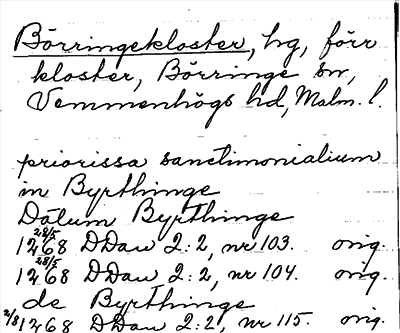 Börringekloster, hg, förr
kloster, Börringe sn,
Vemmenhögs hd, Malm. l.
priorissa sanctimonialium
in Byrthinge
Datum Byrthinge
28/5
1268 DDan 2:2, nr 103. orig.
28/5
1268 DDan 2:2, nr 104. orig.
de Byrthinge
2/8 1268 DDan 2:2, nr 115. orig.